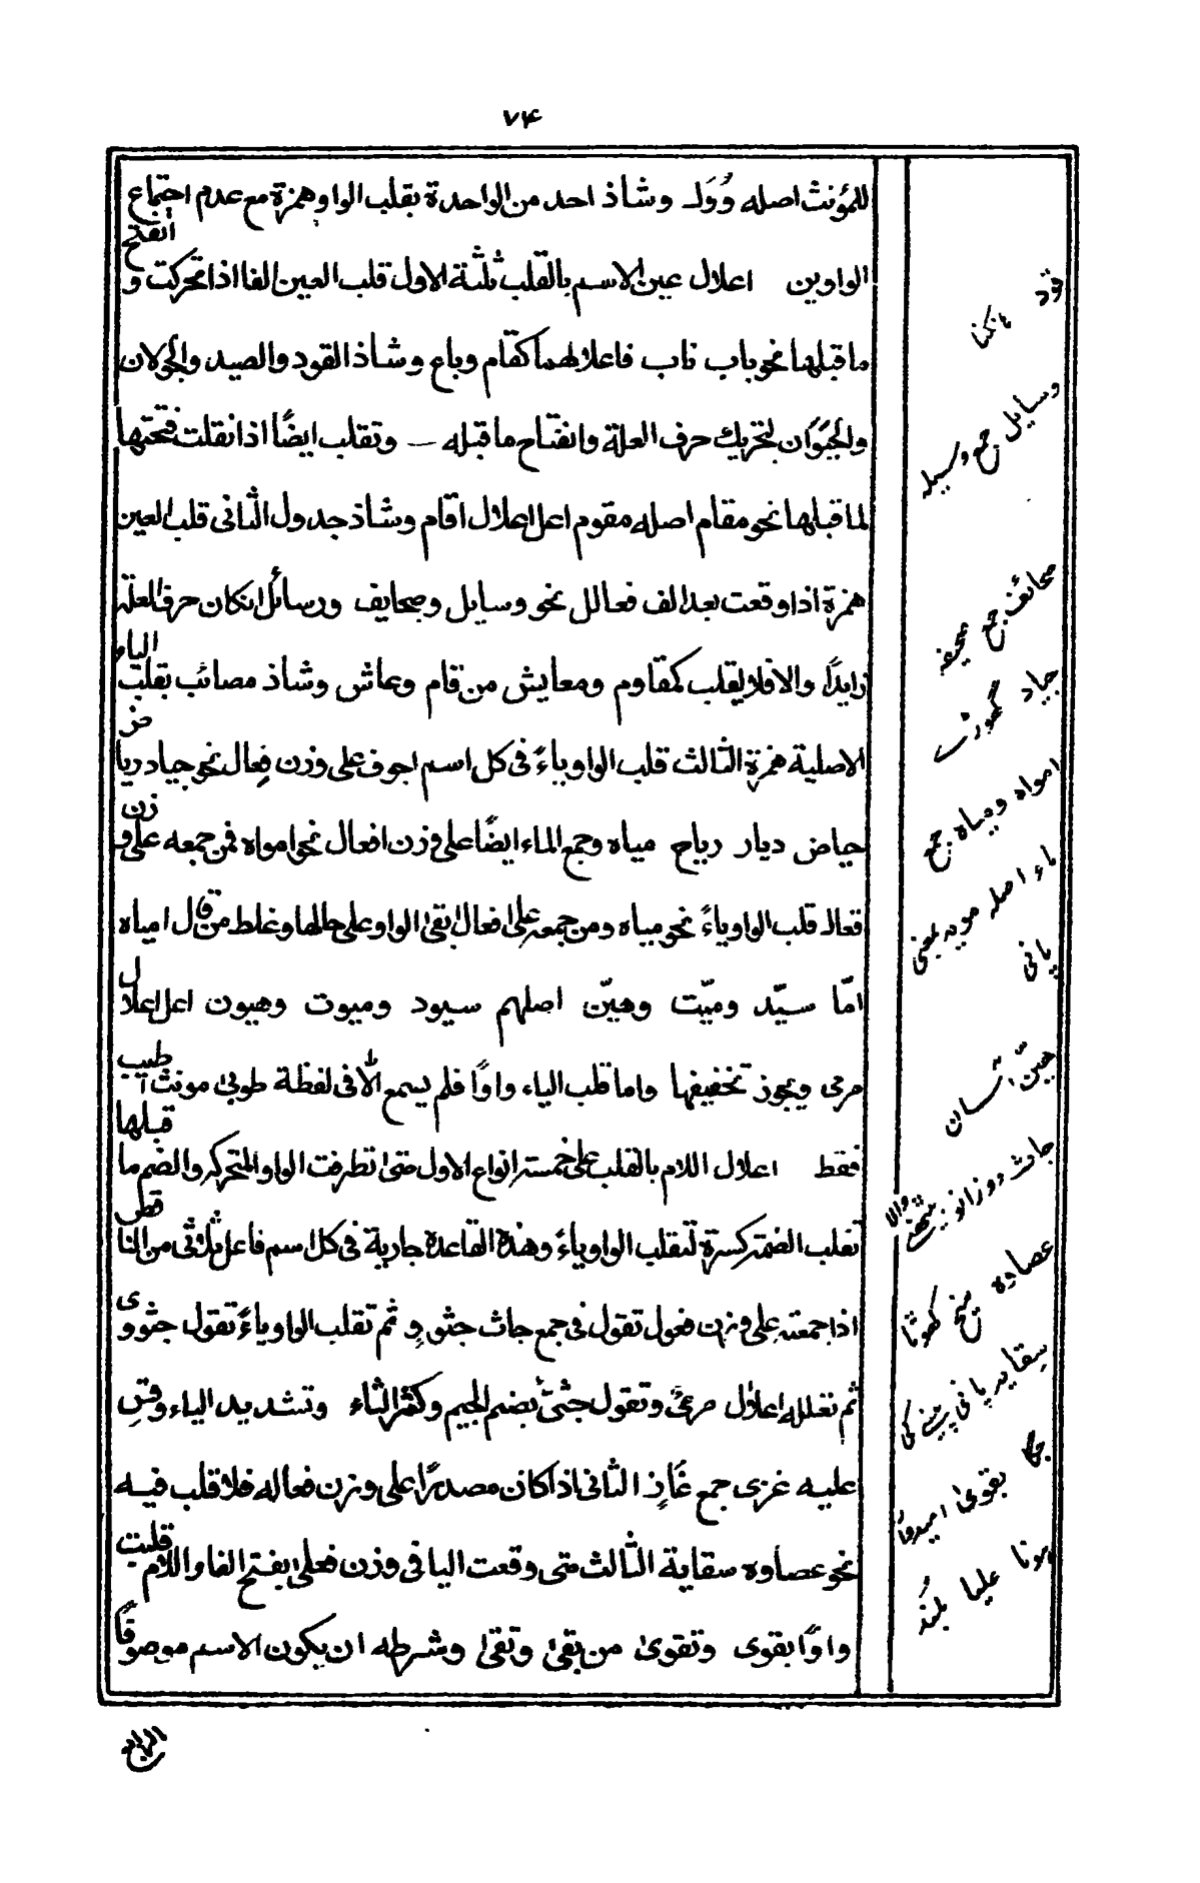 ۷۴
للمؤنث اصله وُوَل وشاذ احد من الواحدة بقلب الواو همزة مع عدم اجتماع
الواوين اعلال عين الاسم بالقلب ثلثة الاول قلب العين الفا اذا تحركت و انفتح
ما قبلها نحو باب ناب فاعلالهما كقام وباع وشاذ القود والصيد والجولان
والحَيَوَان لتحريك حرف العلة وانفتاح ما قبله — وتقلب ايضًا اذا نقلت فتحتها
لما قبلها نحو مقام اصله مقوم اعل اعلال اقام وشاذ جدول الثانى قلب العين
همزة اذا وقعت بعد الف فعالل نحو وسايل وصحايف ورسائل انكان حرف العلة
زايدًا والا فلا يقلب كمقاوم ومعايش من قام وعاش وشاذ مصائب بقلب الياء
الاصلية همزة الثالث قلب الواو ياءً فى كل اسم اجوف على وزن فِعال نحو جياد رياض
حياض ديار رياح مياه وجمع الماء ايضًا على وزن افعال نحو امواه فمن جمعه على وزن
فعال قلب الواو ياءً نحو مياه ومن جمعه على افعال ابقى الواو على حالها وغلط من قال امياه
امّا سيّد وميّت وهيّن اصلهم سيود وميوت وهيون اعل اعلال
مرمى ويجوز تخفيفها واما قلب الياء واوًا فلم يسمع الّا فى لفظة طوبىٰ مونث اطيب
فقط اعلال اللام بالقلب على خمسة انواع الاول متىٰ تطرفت الواو المتحركه والضم ما قبلها
تقلب الضمة كسرة لتقلب الواو ياءً وهذه القاعدة جارية فى كل اسم فاعل ثلاثى من الناقص
اذا جمعته على وزن فعول تقول فى جمع جاث جثوو ثم تقلب الواو ياءً تقول جثووى
ثم تعلله اعلال مرمى وتقول جثىّ بضم الجيم وكسر الثاء وتشديد الياء وقس
عليه غزى جمع غَازٍ الثانى اذا كان مصدرًا على وزن فعاله فلا قلب فيه
نحو عصاوه سقاية الثالث متى وقعت اليا فى وزن فعلىٰ بفتح الفا واللام قلبت
واوًا بقوى وتقوىٰ من بقىٰ وتقىٰ وشرطه ان يكون الاسم موصوفًا
قود
وسایل جمع وسیله
صحائف جمع صحیفه
جیاد
امواه ومیاه جمع
ماء اصله مویه بمعنی
پانی
هین آسان
جاث دوزانو بیٹھنے والا
عصاوه
سِقایه پانی پینے کی
جگہ بقویٰ امیدوار
ہونا علیا بلند
الرابع